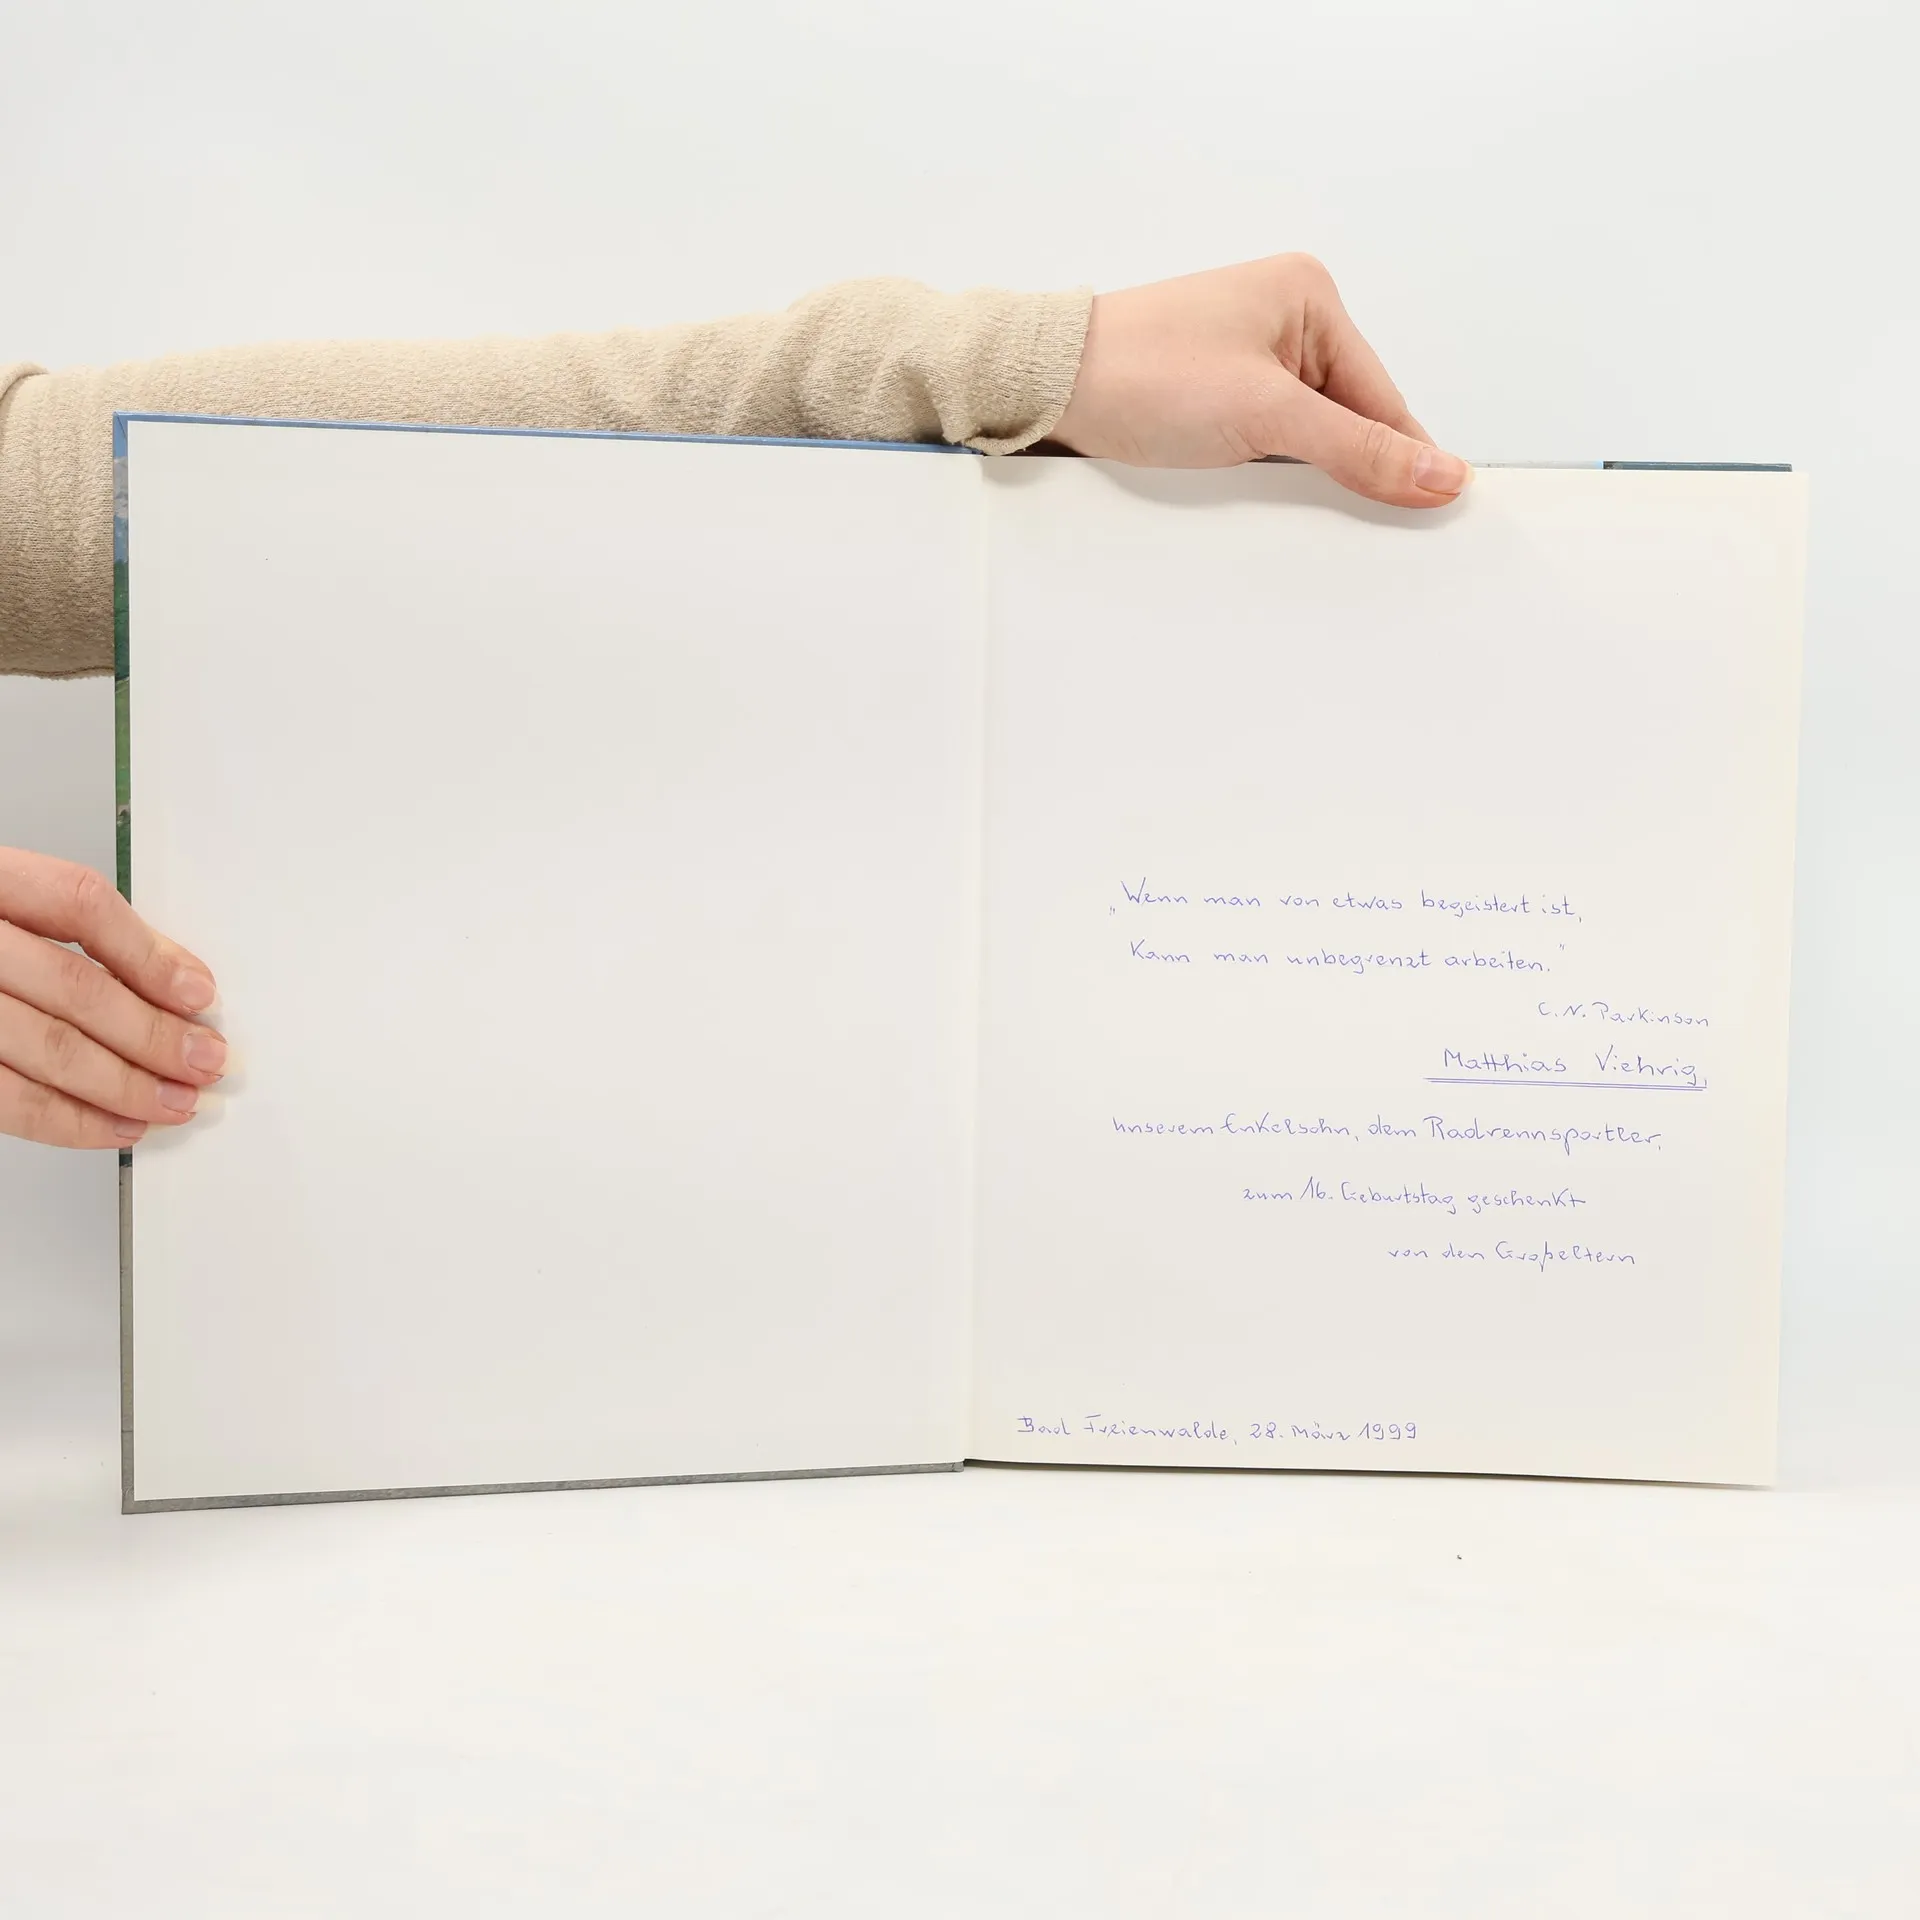 „Wenn man von etwas begeistert ist,
kann man unbegrenzt arbeiten."
C. N. Parkinson
Matthias Viehrig,
unserem Enkelsohn, dem Radrennsportler,
zum 16. Geburtstag geschenkt
von den Großeltern
Bad Freienwalde, 28. März 1999